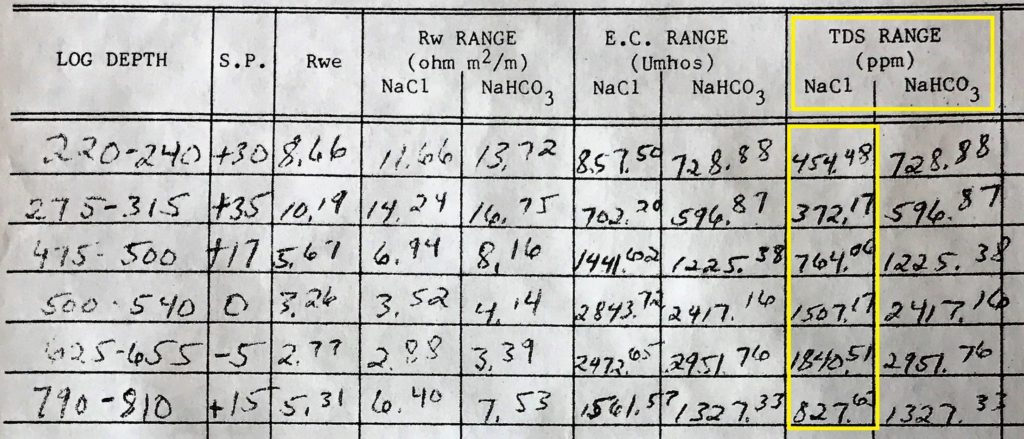 Rw RANGE E.C. RANGE TDS RANGE
LOG DEPTH S.P. Rwe (ohm m²/m) (Umhos) (ppm)
NaCl NaHCO₃ NaCl NaHCO₃ NaCl NaHCO₃
220-240 +30 8.66 11.66 13.72 857.50 728.88 454.48 728.88
275-315 +35 10.19 14.24 16.75 702.20 596.87 372.17 596.87
475-500 +17 5.67 6.94 8.16 1441.62 1225.38 764.06 1225.38
500-540 0 3.26 3.52 4.14 2843.72 2417.16 1507.17 2417.16
625-655 -5 2.77 2.88 3.39 3472.65 2951.76 1840.51 2951.76
790-810 +15 5.31 6.40 7.53 1561.57 1327.33 827.63 1327.33